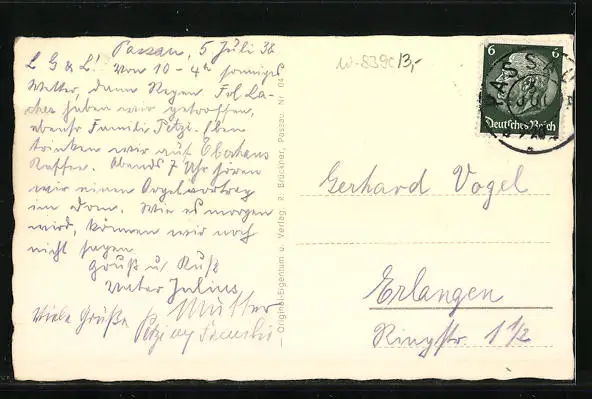 Passau, 5 Juli 38
L G & L! Von 10 - 4 h sonniges
Wetter, dann Regen. Frl La-
haben wir getroffen,
ebenso Familie Petzi. Eben
trinken wir auf Oberhaus
Kaffee. Abends 7 Uhr hören
wir einen Orgelvortrag
im Dom. Wie es morgen
wird, können wir noch
nicht sagen
Gruß u. Kuß
Vater Julius
Mutter
Viele Grüße
W-839c 13,-
Original-Eigentum u. Verlag R. Brückner, Passau. Nr. 04
6 6
Deutsches Reich
PASSAU
Gerhard Vogel
Erlangen
Ringstr. 1 1/2